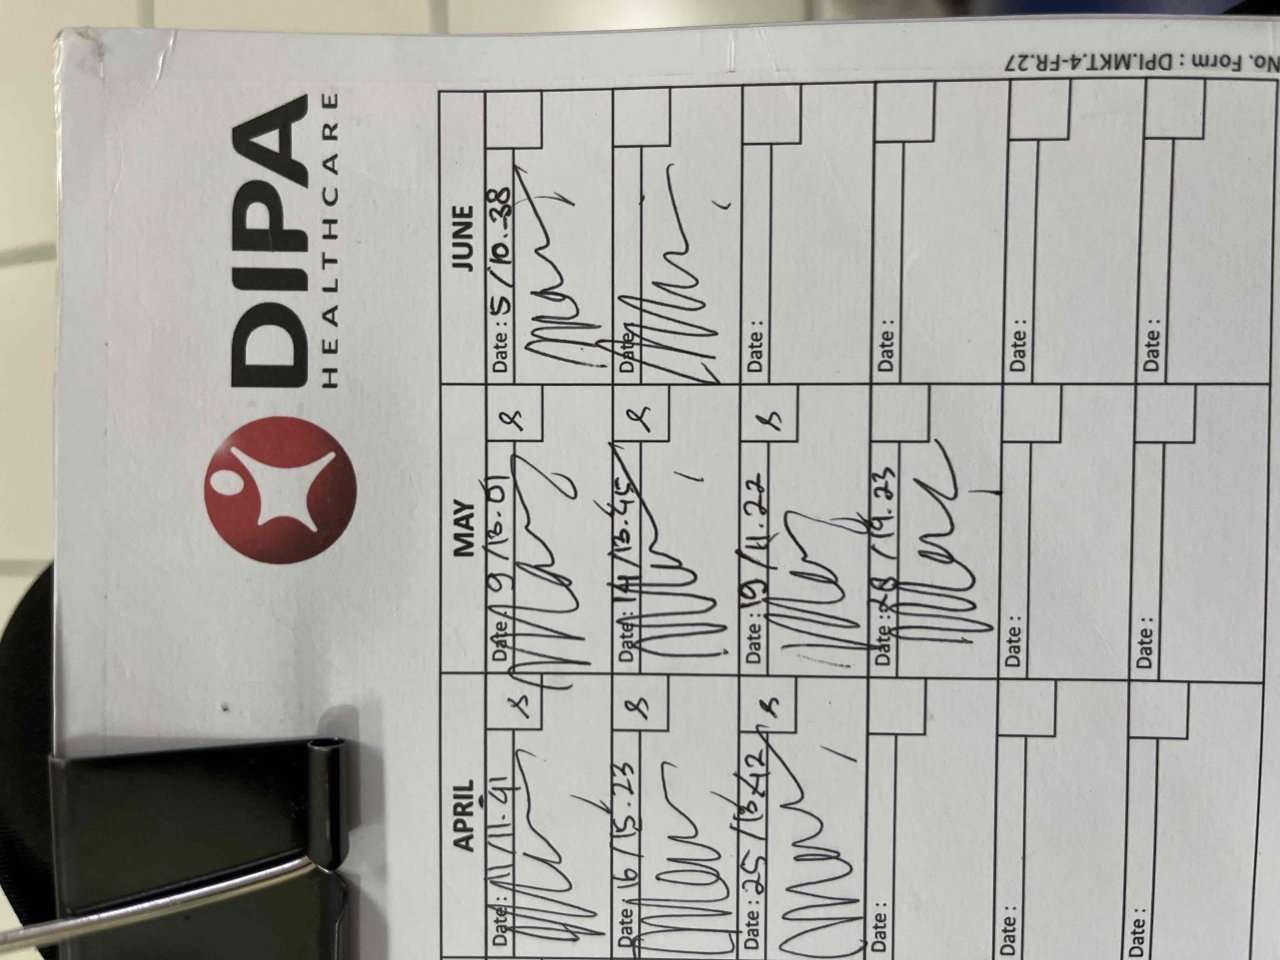 DIPA
HEALTHCARE
No. Form : DPI.MKT.4-FR.27
APRIL MAY JUNE
Date : 11/11.41 S Date : 9/13.01 S Date : 5/10.38
Date : 16/15.23 S Date : 14/13.45 S Date :
Date : 25/13.42 S Date : 19/11.22 S Date :
Date : Date : 28/19.23 Date :
Date : Date : Date :
Date : Date : Date :